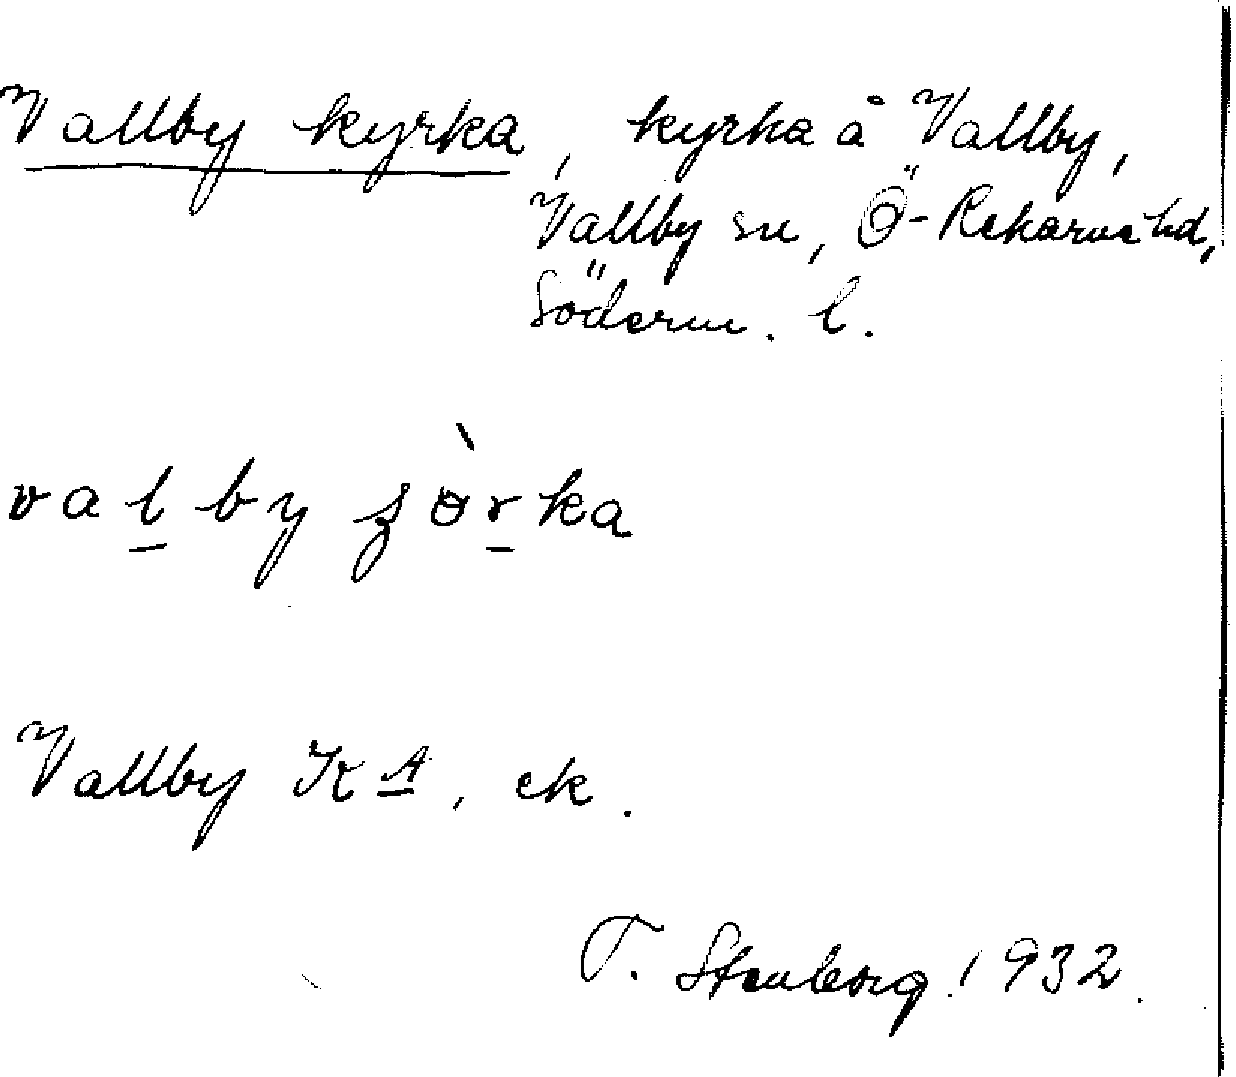 Vallby kyrka, kyrka å Vallby,
Vallby sn, Ö-Rekarne hd,
Söderm. l.
val̲by ʂɵ̀r̲ka
Vallby K A̲, ek.
T. Stenborg. 1932.